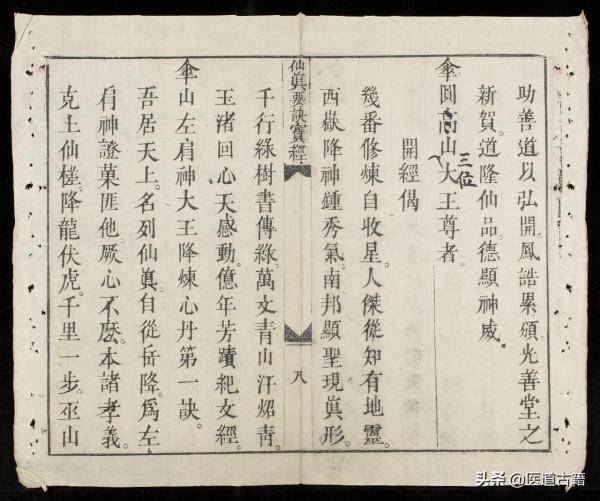 助善道以弘開。鳳誥累頒。光善堂之
新賀。道隆仙品。德顯神威。
傘圓山三位大王尊者。
開經偈
幾番修煉自收星。人傑從知有地靈。
西嶽降神鍾秀氣。南邦顯聖現眞形。
仙眞要訣寶經
八
千行綠樹書傳綠。萬文青山汗炤青。
玉渚回心天感動。億年芳蹟紀文經。
傘山左肩神大王降煉心丹第一訣。
吾居天上。名列仙眞。自從岳降。爲左
肩神。證菓匪他。厥心不麽。本諸孝義。
克土仙槎。降龍伏虎。千里一步。巫山
头条@医道古籍